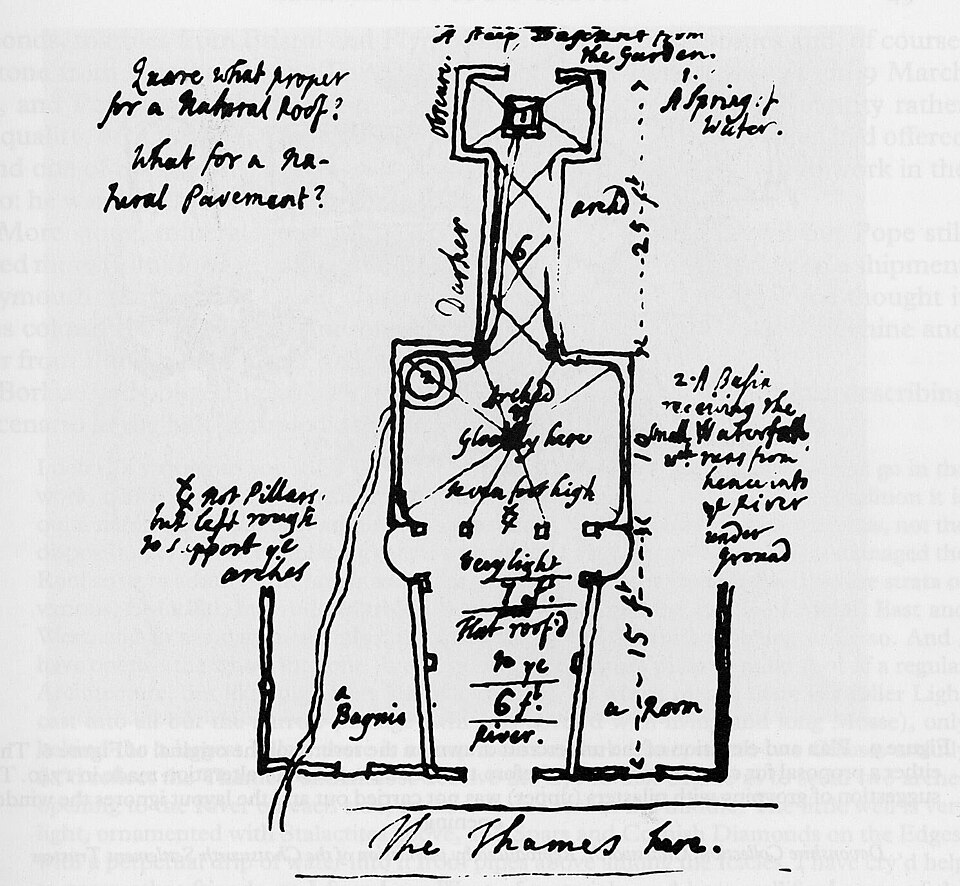 A steep Basement from
the Garden.
Quare what proper
for a Natural Roof?
What for a na-
tural Pavement?
obscure.
1.
A Spring of
Water.
1
arch'd
25 f
Darker
6
2
Arched
Gloomy here
seven foot high
2. A Basin
receiving the
small Waterfall
wch runs from
hence into
ye River
under
ground
not Pillars.
but left rough
to support ye
arches
Very light
7 f.
Flat roof'd
to ye
6 f.
River.
15 ft
a
Bagnio
a Room
The Thames here.